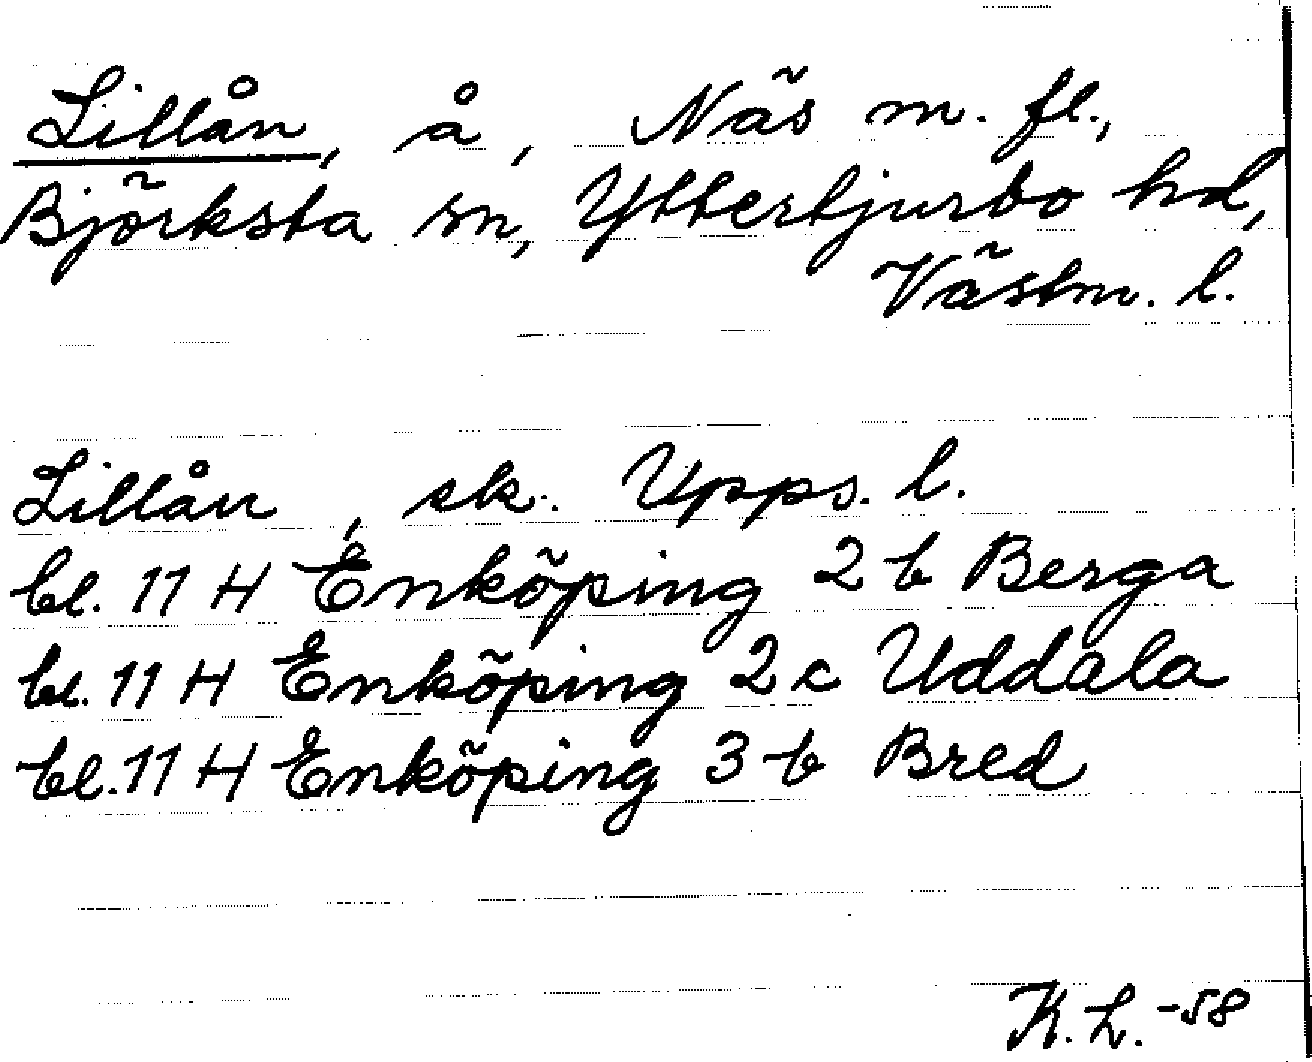 Lillån, å, Näs m. fl.,
Björksta sn, Yttertjurbo hd,
Västm. l.
Lillån, ek. Upps. l.
bl. 11 H Enköping 2 b Berga
bl. 11 H Enköping 2 c Uddala
bl. 11 H Enköping 3 b Bred
K. L. -58